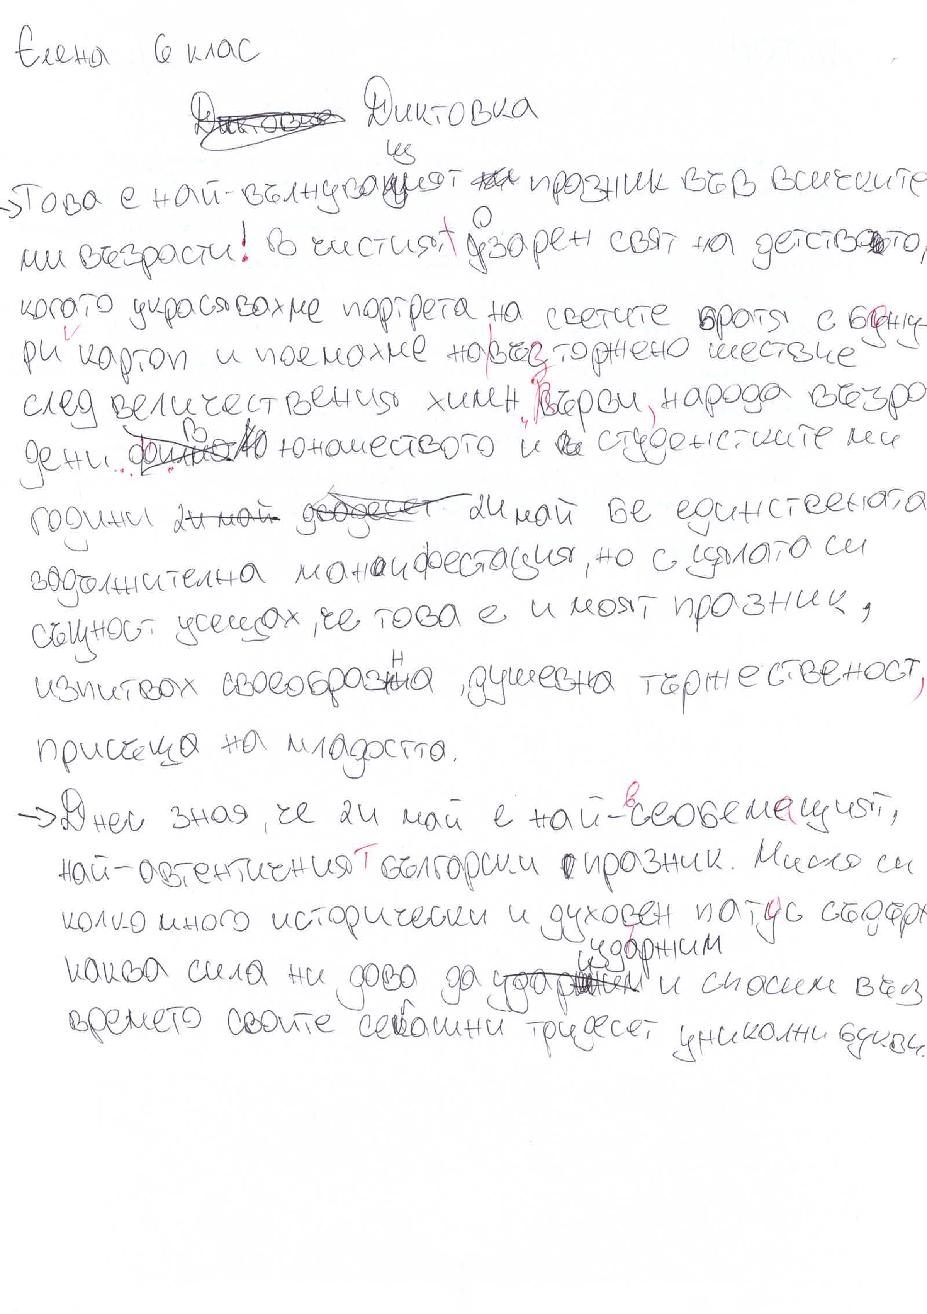 Елена 6 клас
Диктовка Диктовка
→Това е най-вълнуващият празник във всичките
ми възрасти! В чистият озарен свят на детството,
когато украсявахме портрета на светите братя с бону-
ри картоп и поемахме навъзторжено шествие
след величествения химн „Върви, народа възро
дени". В юношеството и в студенстките ми
години 24 май двадесет 24 май бе единствената
задължителна манифестация, но с цялата си
същност усещах, че това е и моят празник,
изпитвах своеобразна, душевна тържественост,
присъща на младостта.
→Днес зная, че 24 май е най-всеобемащият,
най-автентичният български празник. Мисля си
колко много исторически и духовен патус съдърж
каква сила ни дава да издържим и спасим във
времето своите сегашни тридесет уникални букви.